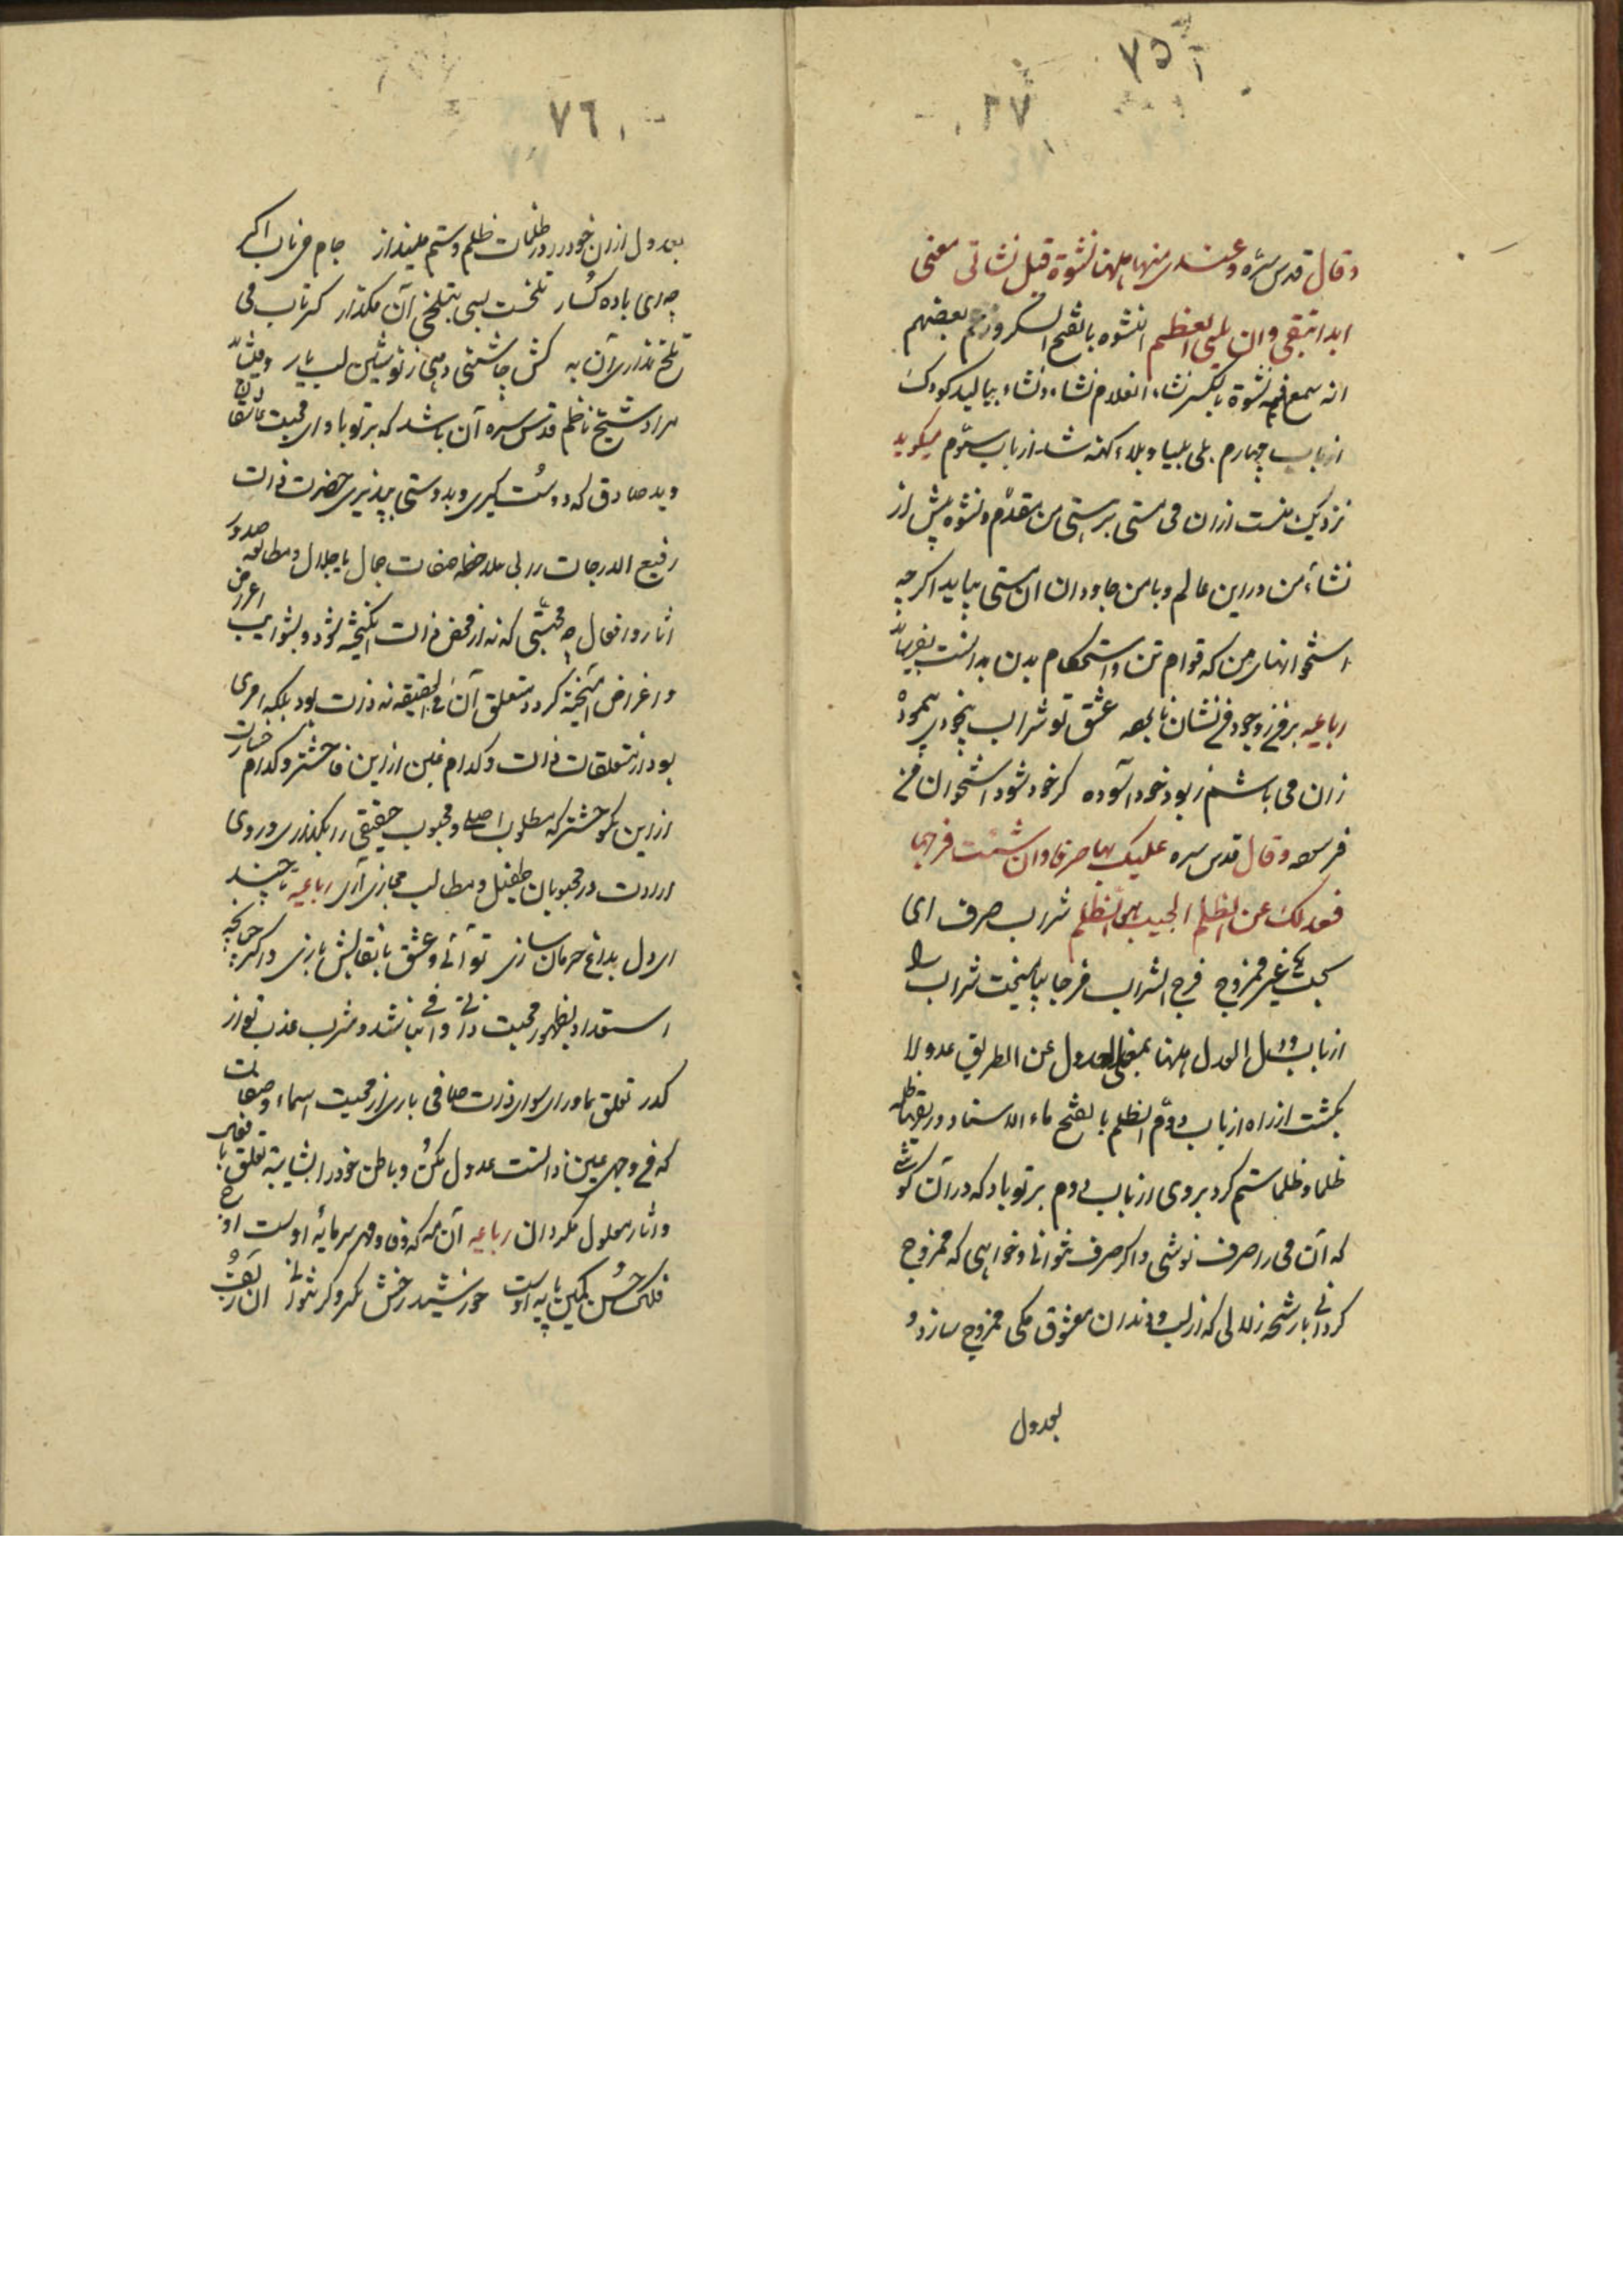 ٧٥
٢٧
وقال قدس سره وعندی منها نشوة قبل نشاتی معی
ابدا تبقی وان بلی العظم النشوه بالفتح السکر وزعم بعضهم
انه سمع فیه نشوة بالکسر نشاء الغلام نشاء ونشاء ببالید کودک
از باب چهارم بلی بلیا وبلاء کهنه شد از باب سوم میکوید
نزدیک منست ازان می مستی بر هستی من متقدم ونشوه پیش از
نشاءه من در این عالم وبا من جاودان ان مستی بپاید اکر چه
استخوانهای من که قوام تن واستحکام بدن بدانست بفرساید
رباعیه بر فی زوجود فی نشان نابوده عشق تو شراب بیخودی پیموده
زان می باشم زبود خود آسوده کر خود شود استخوان من
فرسوده وقال قدس سره علیک بها صرفا وان شئت مزجها
فعدلک عن ظلم الحبیب هو الظلم شراب صرف ای
بحت غیر ممزوج مزج الشراب مزجا بیامیخت شراب را
از باب اول العدل هاهنا بمعنی العدول عن الطریق عدولا
بکشت از راه از باب دوم الظلم بالفتح ماء الاسنان وبریقها ظلمه
ظلما وظلما ستم کرد بروی از باب دوم بر تو باد که در آن کوشی
که آن می را صرف نوشی واکر صرف نتوانی وخواهی که ممزوج
کردانی با رشحه زلالی که از لب ودندان معشوق مکی ممزوج ساز و
بعدول
٧٦
بعدول ازان خود را در ظلمات ظلم وستم مینداز جام می ناب اکر
چه ای باده کسار تلخست بسی بتلخی آن مکذار کر تاب می
تلخ نداری آن به کش چاشنی دهی ز نوشین لب یار
مراد شیخ ناظم قدس سره آن باشد که بر تو باد ای محبت عاشق
وید صادق که دوست کیری وبدوستی پذیری حضرت ذات
رفیع الدرجات را بی ملاحظه صفات جمال یا جلال ومطالعه صدور
اثار وافعال چه محبتی که نه از محض ذات انکیخته شود وبشوایب اعراض
واغراض آمیخته کردد متعلق آن فی الحقیقه نه ذات بود بلکه امری
بود از متعلقات ذات وکدام غبن از این فاحشتر وکدام خسارت
از این موحشتر که مطلوب اصلی ومحبوب حقیقی را بکذاری وروی
ارادت در محبوبان طفیل ومطالب مجازی آری رباعیه تا چند
ای دل بداغ حرمان سازی تو آنی وعشق با نقابش بازی واکر چنانچه
استعداد بظهور محبت ذاتی وافی نباشد ومشرب عذب تو از
کدر تعلق بماورای سوای ذات صافی باری از محبت اسماء وصفات
که فی وجه عین ذاتست عدول مکن وباطن خود را بشایبه تعلق
واثار معلول مکردان رباعیه آن مه که وفا ومهر سرمایه اوست اوج
فلک حسن کمین پایه اوست خورشید رخش نکر وکر نتوانی ان زلف